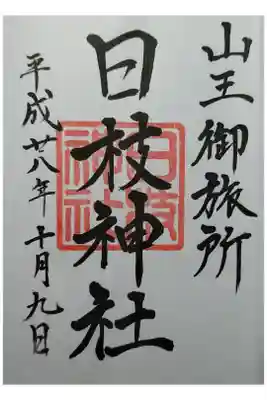 山王御旅所
日枝神社
平成廿八年十月九日
日枝神社